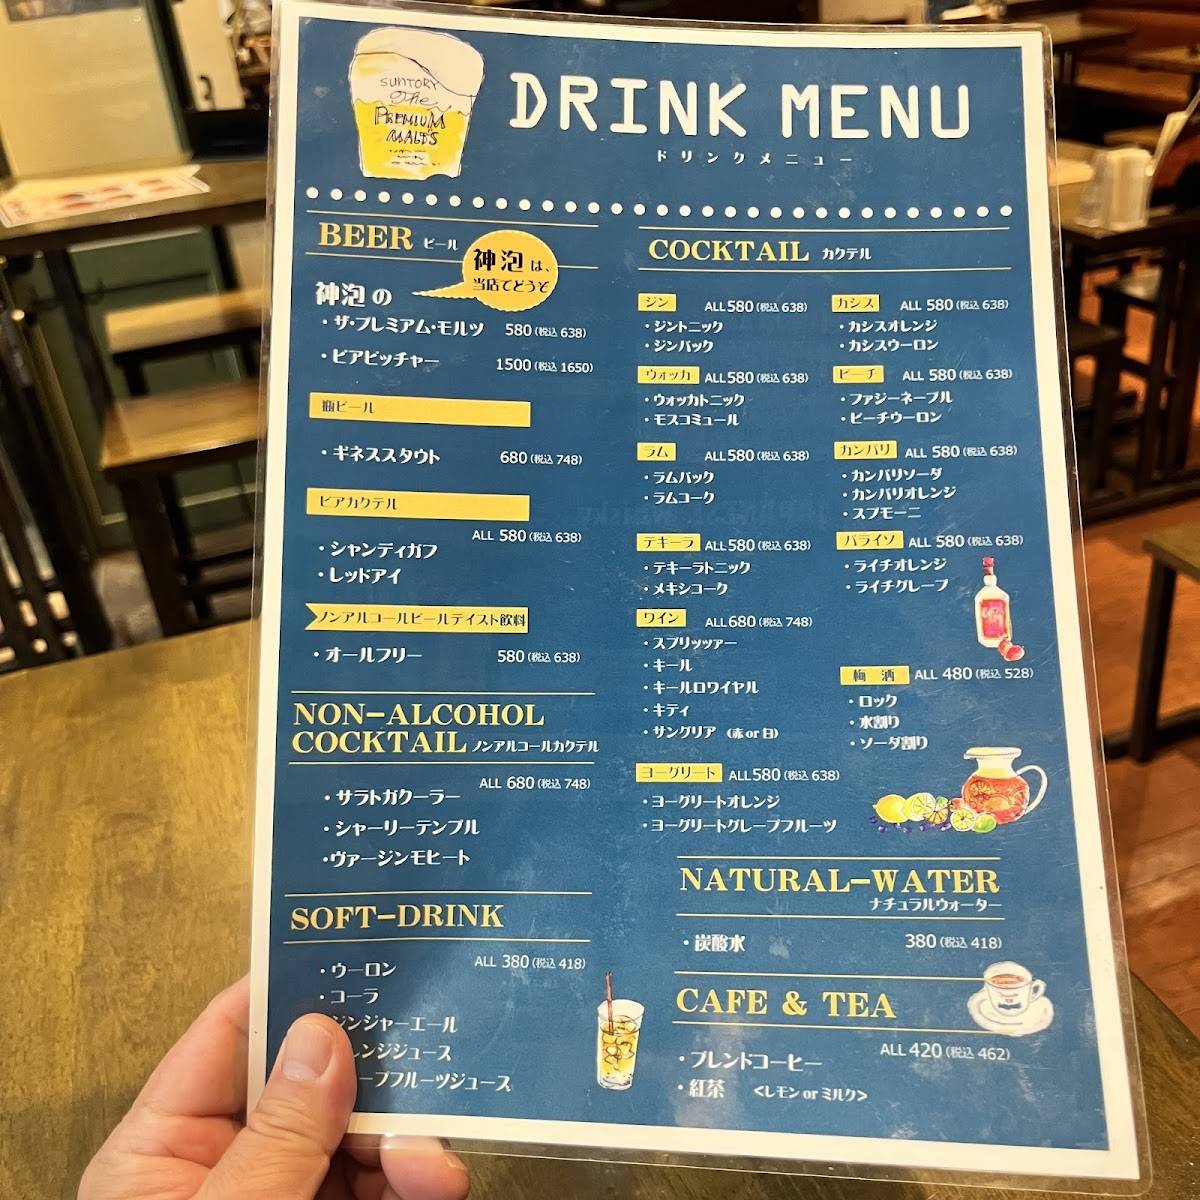 SUNTORY
The
PREMIUM
MALT'S
DRINK MENU
ドリンクメニュー
BEER ビール
神泡は、
当店でどうぞ
神泡の
・ザ・プレミアム・モルツ 580(税込 638)
・ビアピッチャー 1500(税込 1650)
瓶ビール
・ギネススタウト 680(税込 748)
ビアカクテル
ALL 580(税込 638)
・シャンディガフ
・レッドアイ
ノンアルコールビールテイスト飲料
・オールフリー 580(税込 638)
NON-ALCOHOL
COCKTAIL ノンアルコールカクテル
ALL 680(税込 748)
・サラトガクーラー
・シャーリーテンプル
・ヴァージンモヒート
SOFT-DRINK
ALL 380(税込 418)
・ウーロン
・コーラ
ジンジャーエール
レンジジュース
ープフルーツジュース
COCKTAIL カクテル
ジン ALL580(税込 638)
・ジントニック
・ジンバック
ウォッカ ALL580(税込 638)
・ウォッカトニック
・モスコミュール
ラム ALL580(税込 638)
・ラムバック
・ラムコーク
テキーラ ALL580(税込 638)
・テキーラトニック
・メキシコーク
ワイン ALL680(税込 748)
・スプリッツァー
・キール
・キールロワイヤル
・キティ
・サングリア (赤 or 白)
ヨーグリート ALL580(税込 638)
・ヨーグリートオレンジ
・ヨーグリートグレープフルーツ
カシス ALL 580(税込 638)
・カシスオレンジ
・カシスウーロン
ピーチ ALL 580(税込 638)
・ファジーネーブル
・ピーチウーロン
カンパリ ALL 580(税込 638)
・カンパリソーダ
・カンパリオレンジ
・スプモーニ
パライソ ALL 580(税込 638)
・ライチオレンジ
・ライチグレープ
梅 酒 ALL 480(税込 528)
・ロック
・水割り
・ソーダ割り
NATURAL-WATER
ナチュラルウォーター
・炭酸水 380(税込 418)
CAFE & TEA
ALL 420(税込 462)
・ブレンドコーヒー
・紅茶 <レモン or ミルク>